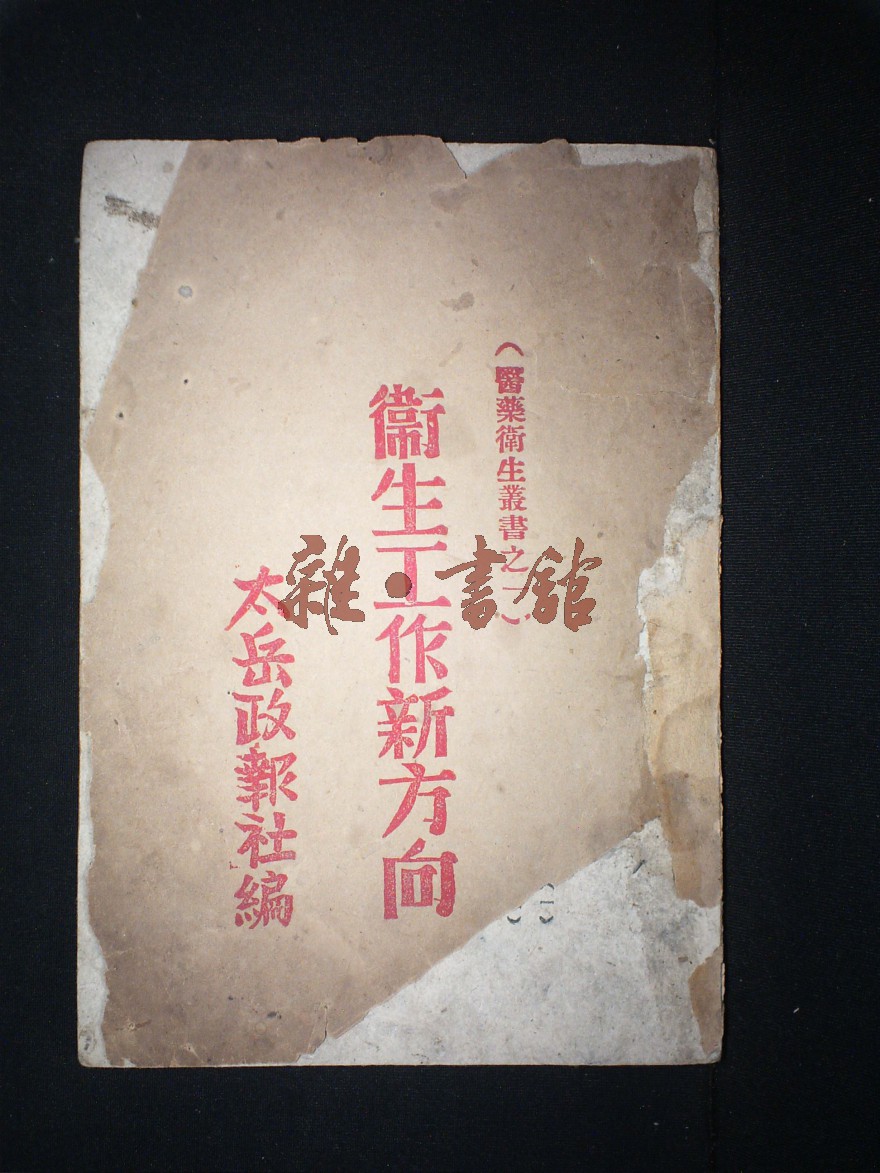 （醫藥衛生叢書之一）
衛生工作新方向
太岳政報社編
雜·書館